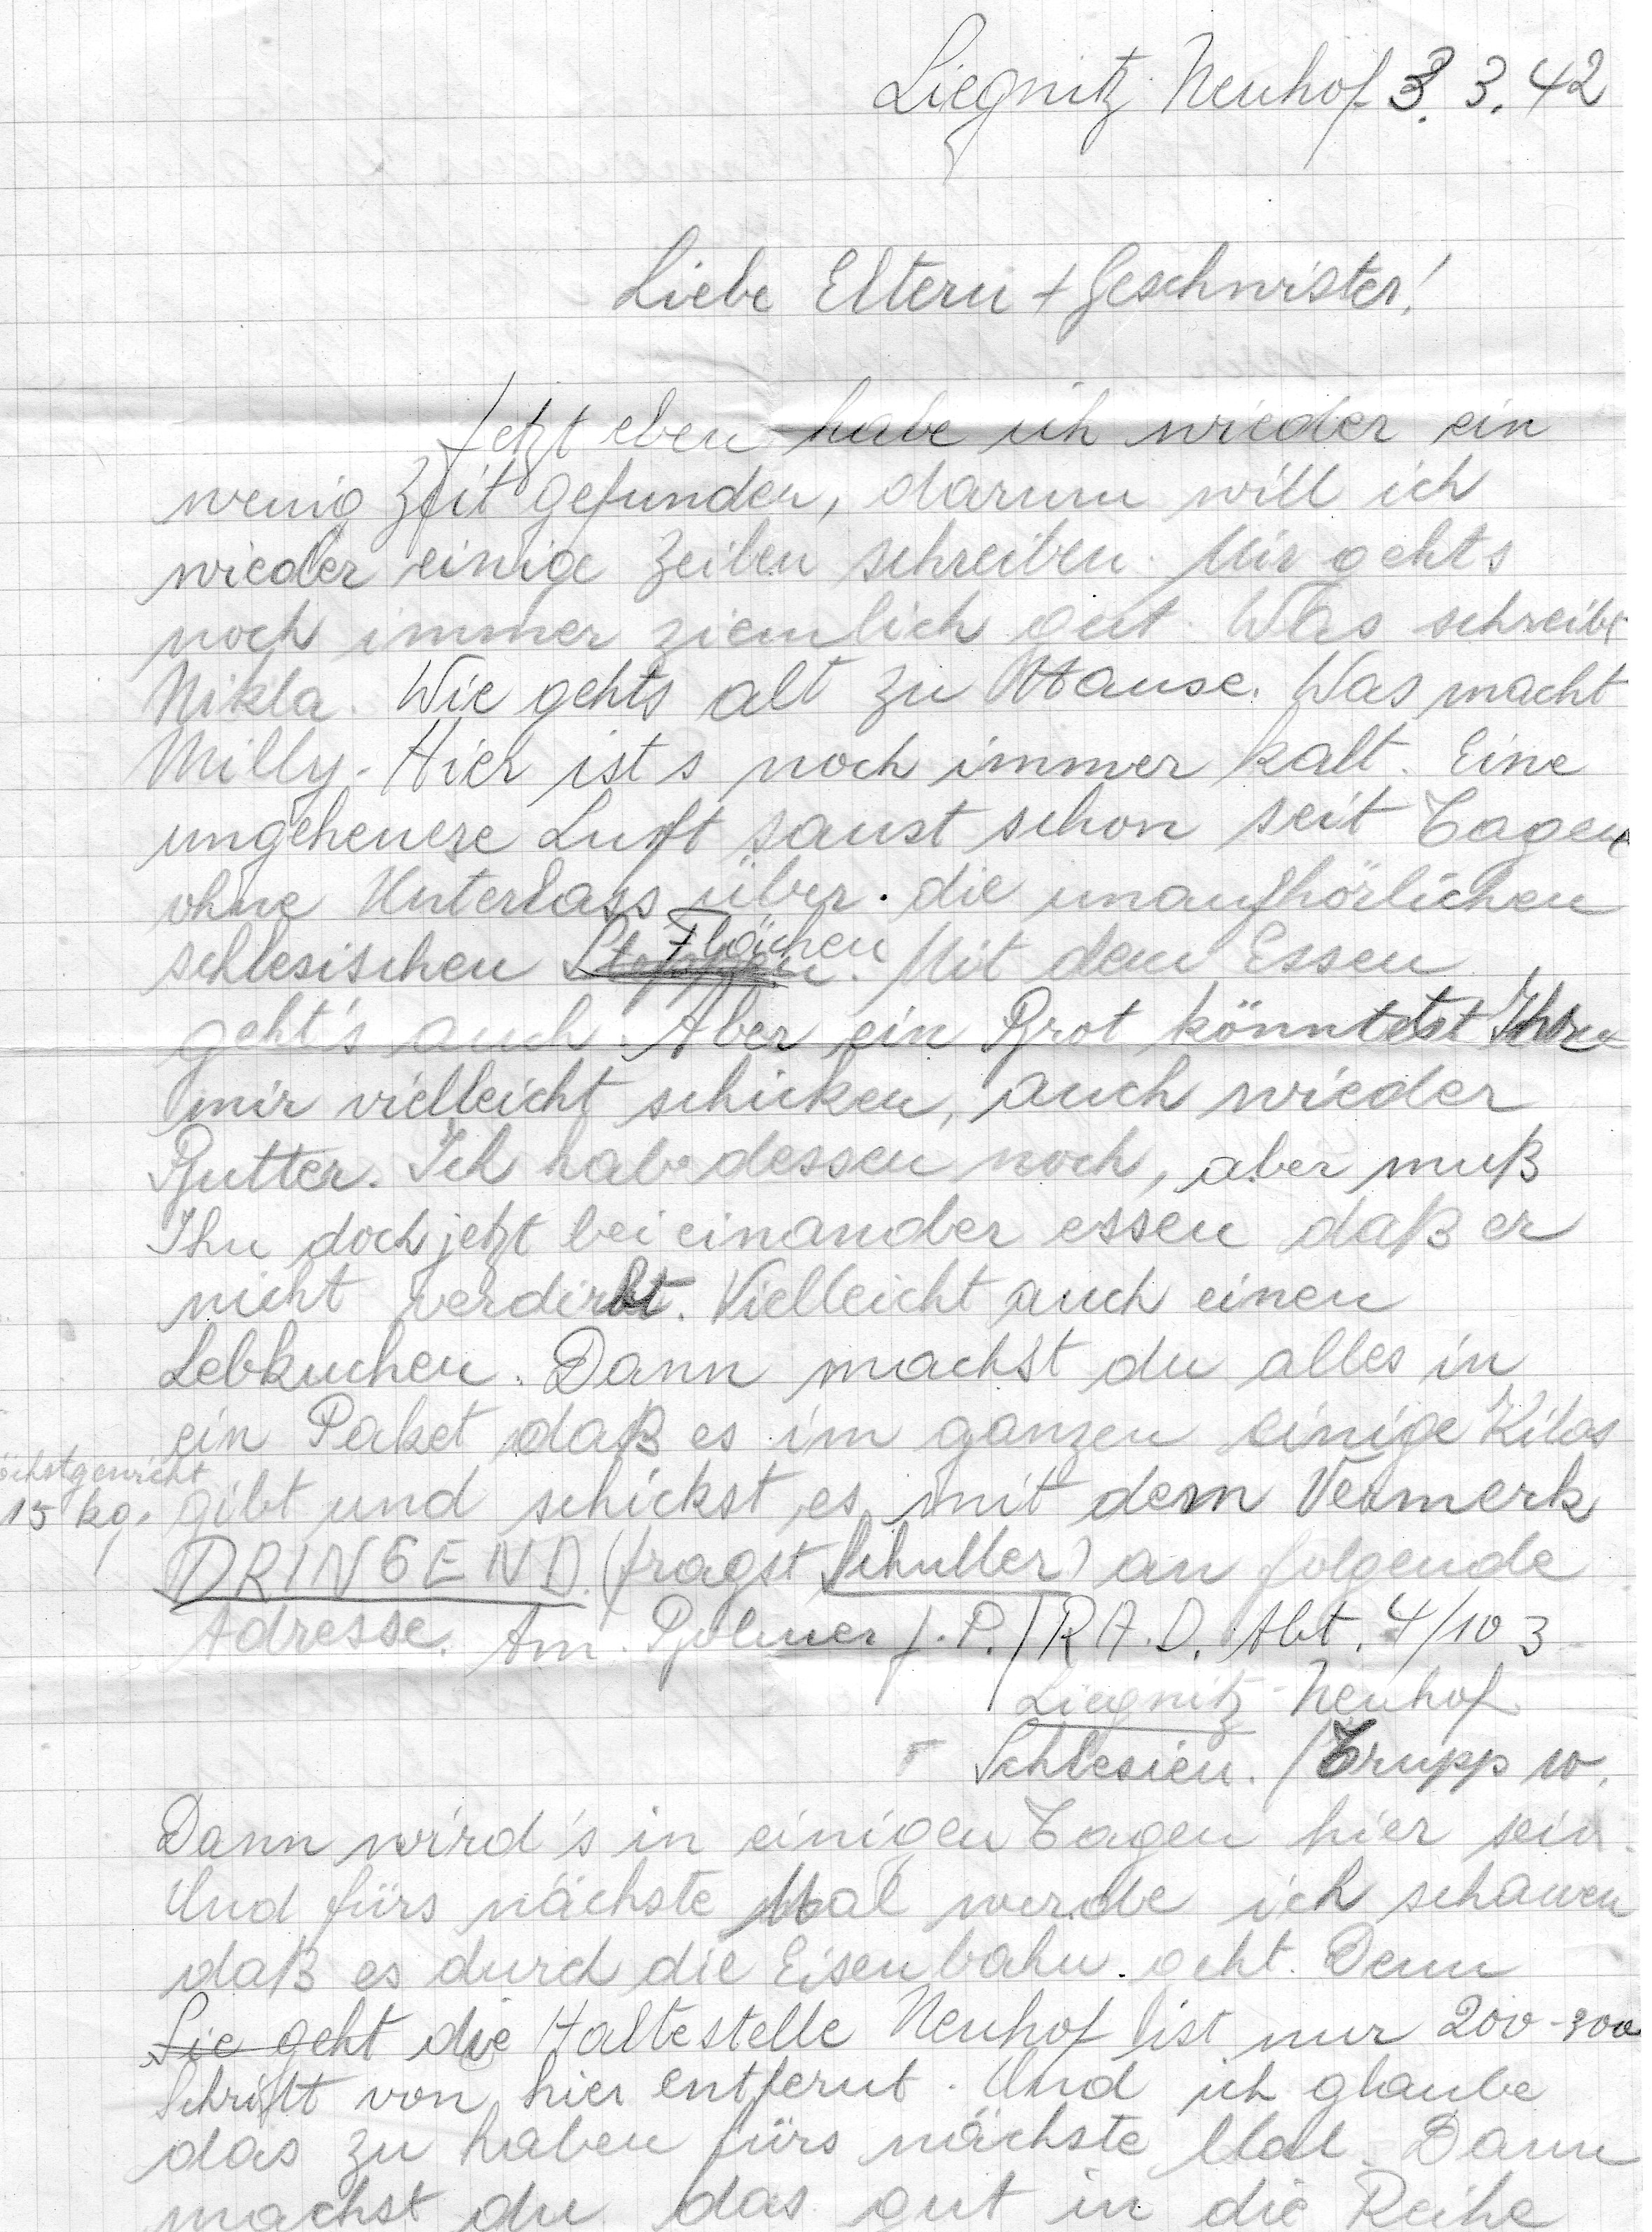 Liegnitz Neuhof 3. 3. 42
Liebe Eltern + Geschwister!
Jetzt eben habe ich wieder ein
wenig Zeit gefunden, darum will ich
wieder einige Zeilen schreiben. Mir gehts
noch immer ziemlich gut. Was schreibt
Nikla. Wie gehts alt zu Hause. Was macht
Milly. Hier ist s noch immer kalt. Eine
ungeheuere Luft saust schon seit Tagen
ohne Unterlass über die unaufhörlichen
schlesischen Flächen. Mit dem Essen
geht's auch. Aber ein Brot könntet Ihr
mir vielleicht schicken, auch wieder
Butter. Ich habe dessen noch, aber muß
Ihn doch jetzt bei einander essen daß er
nicht verdirbt. Vielleicht auch einen
Lebkuchen. Dann machst du alles in
ein Paket daß es im ganzen einige Kilos
öchstgewicht
15 kg. gibt und schickst es mit dem Vermerk
DRINGEND. (fragst Schuller) an folgende
Adresse. Am. f. P./R A. D. Abt. 4/103
Liegnitz-Neuhof
Schlesien. /Trupp 10.
Dann wird's in einigen Tagen hier sein.
Und fürs nächste Mal werde ich schauen
daß es durch die Eisenbahn geht. Denn
Sie geht die Haltestelle Neuhof ist nur 200-300
Schritt von hier entfernt. Und ich glaube
das zu haben fürs nächste Mal. Dann
machst du das gut in die Reihe